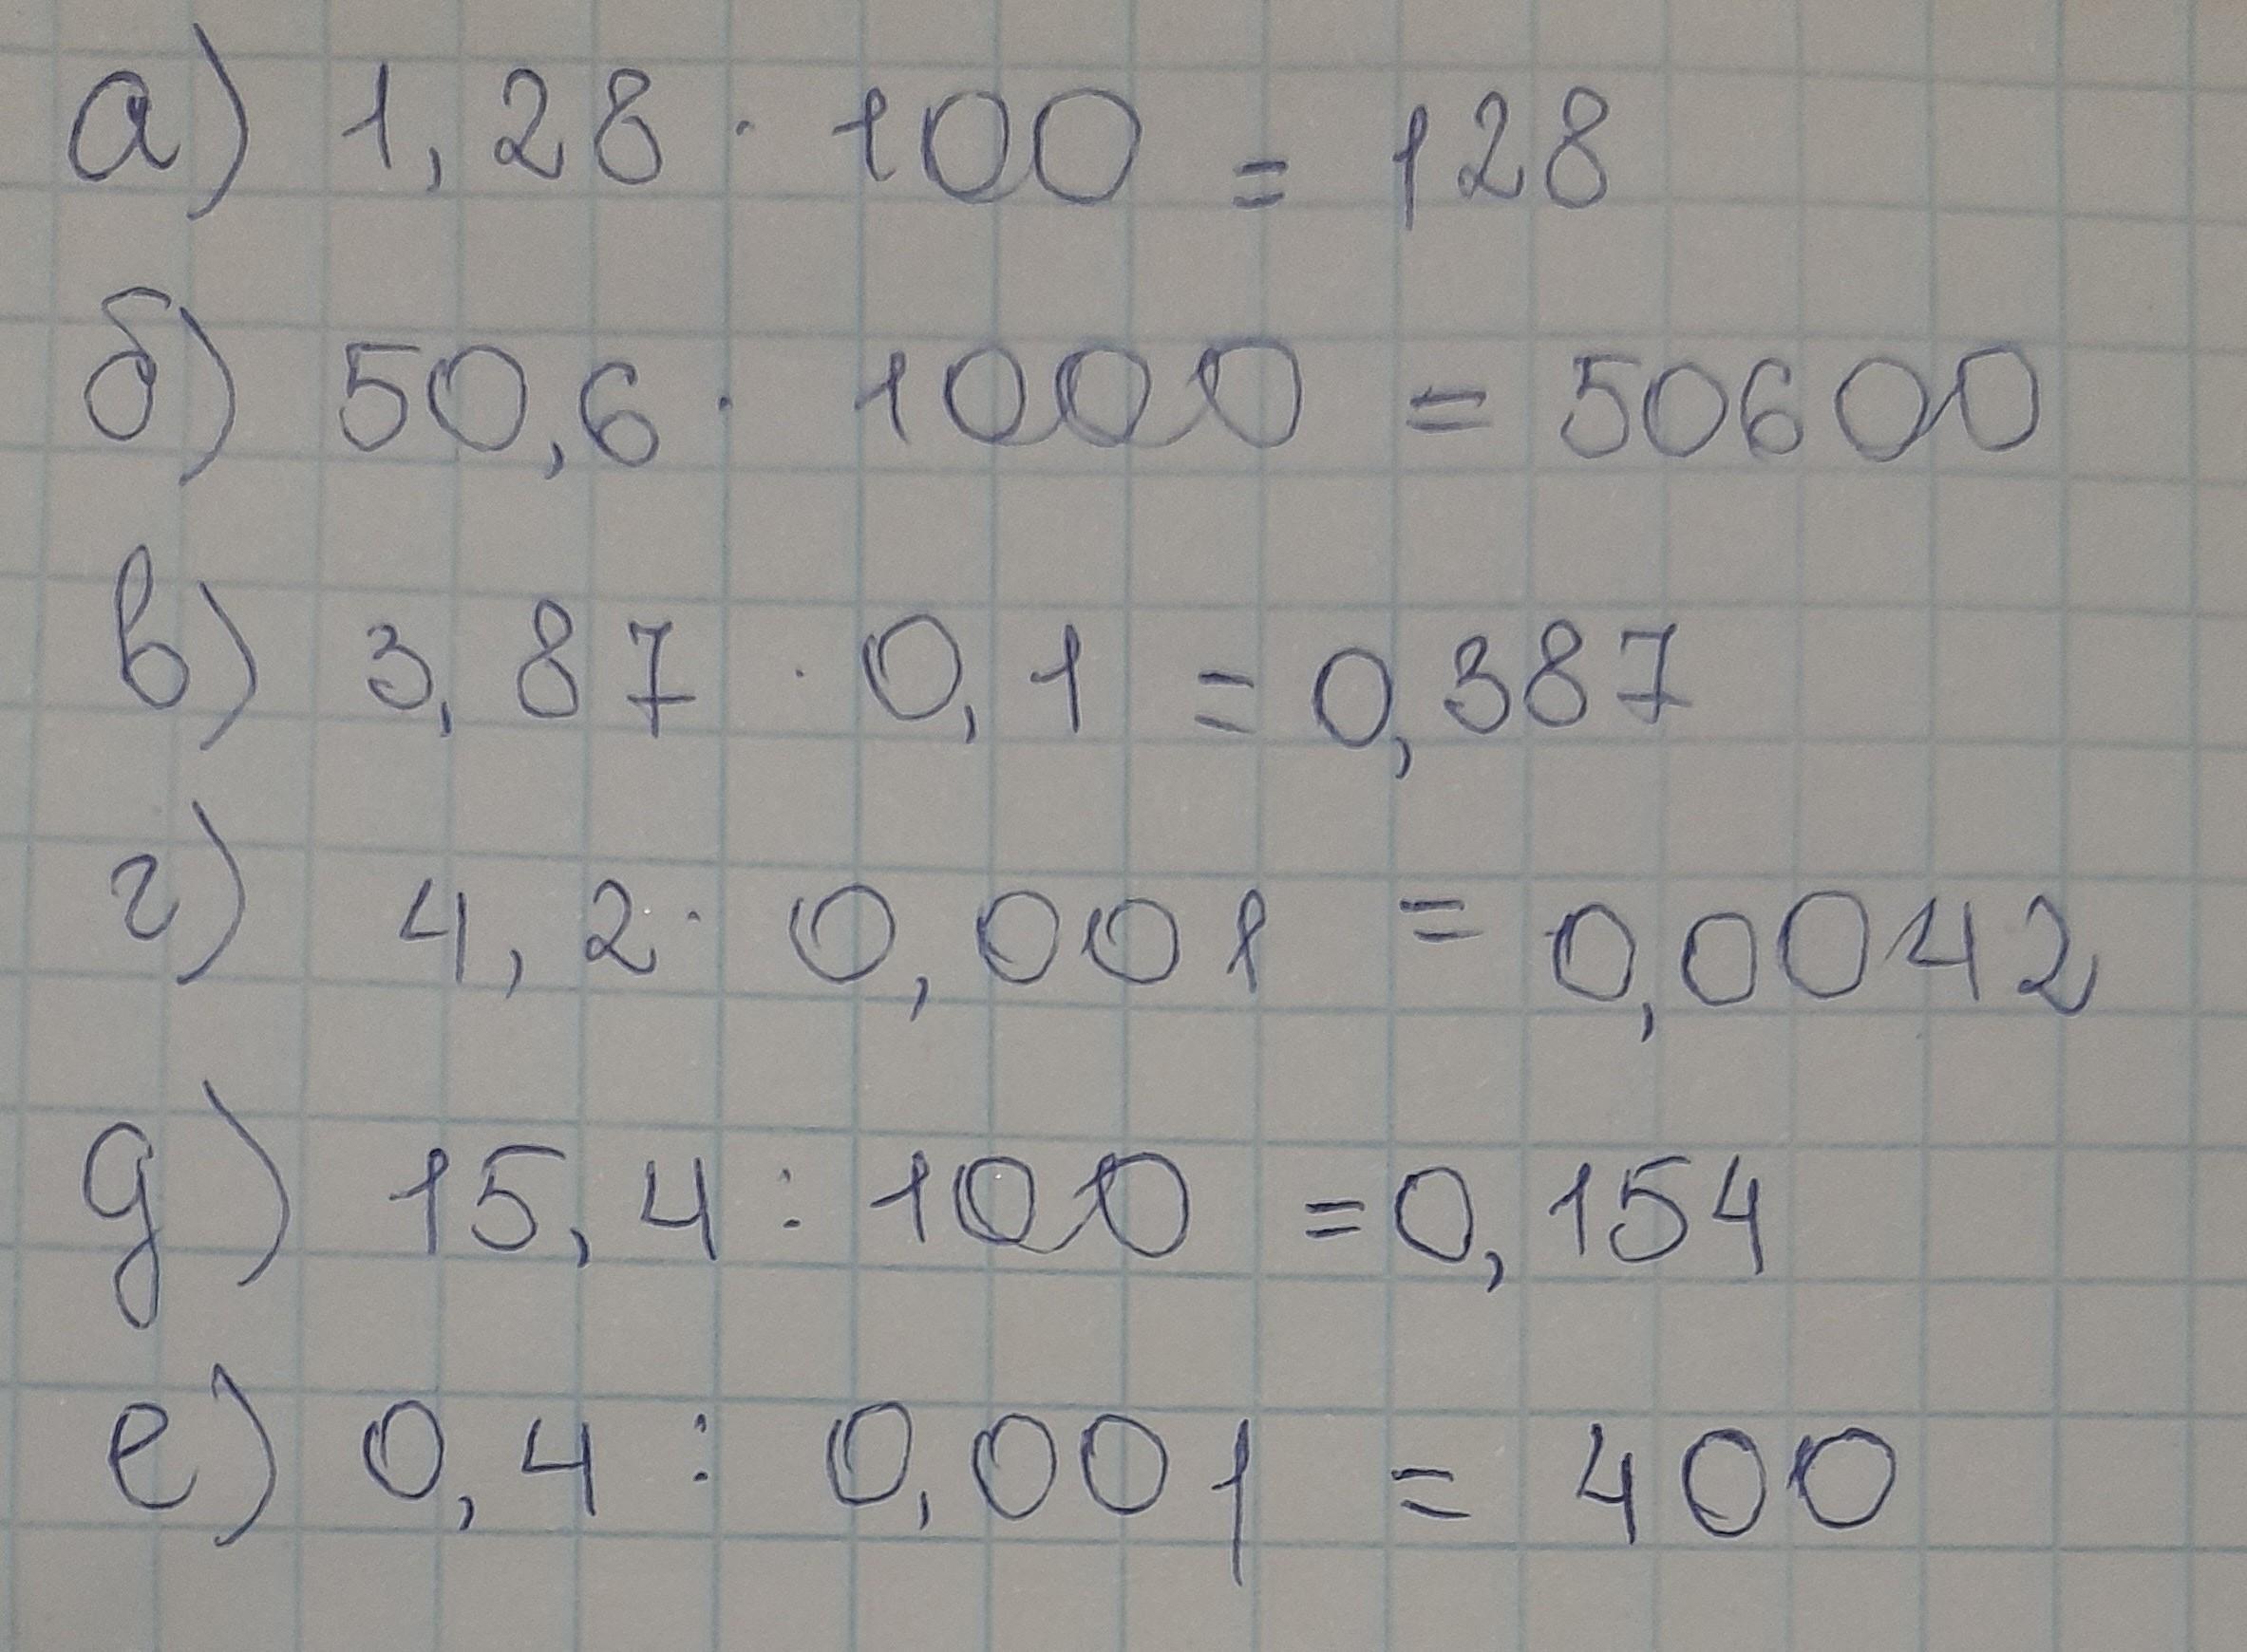 а) 1,28 · 100 = 128
б) 50,6 · 1000 = 50600
в) 3,87 · 0,1 = 0,387
г) 4,2 · 0,001 = 0,0042
д) 15,4 : 100 = 0,154
е) 0,4 : 0,001 = 400